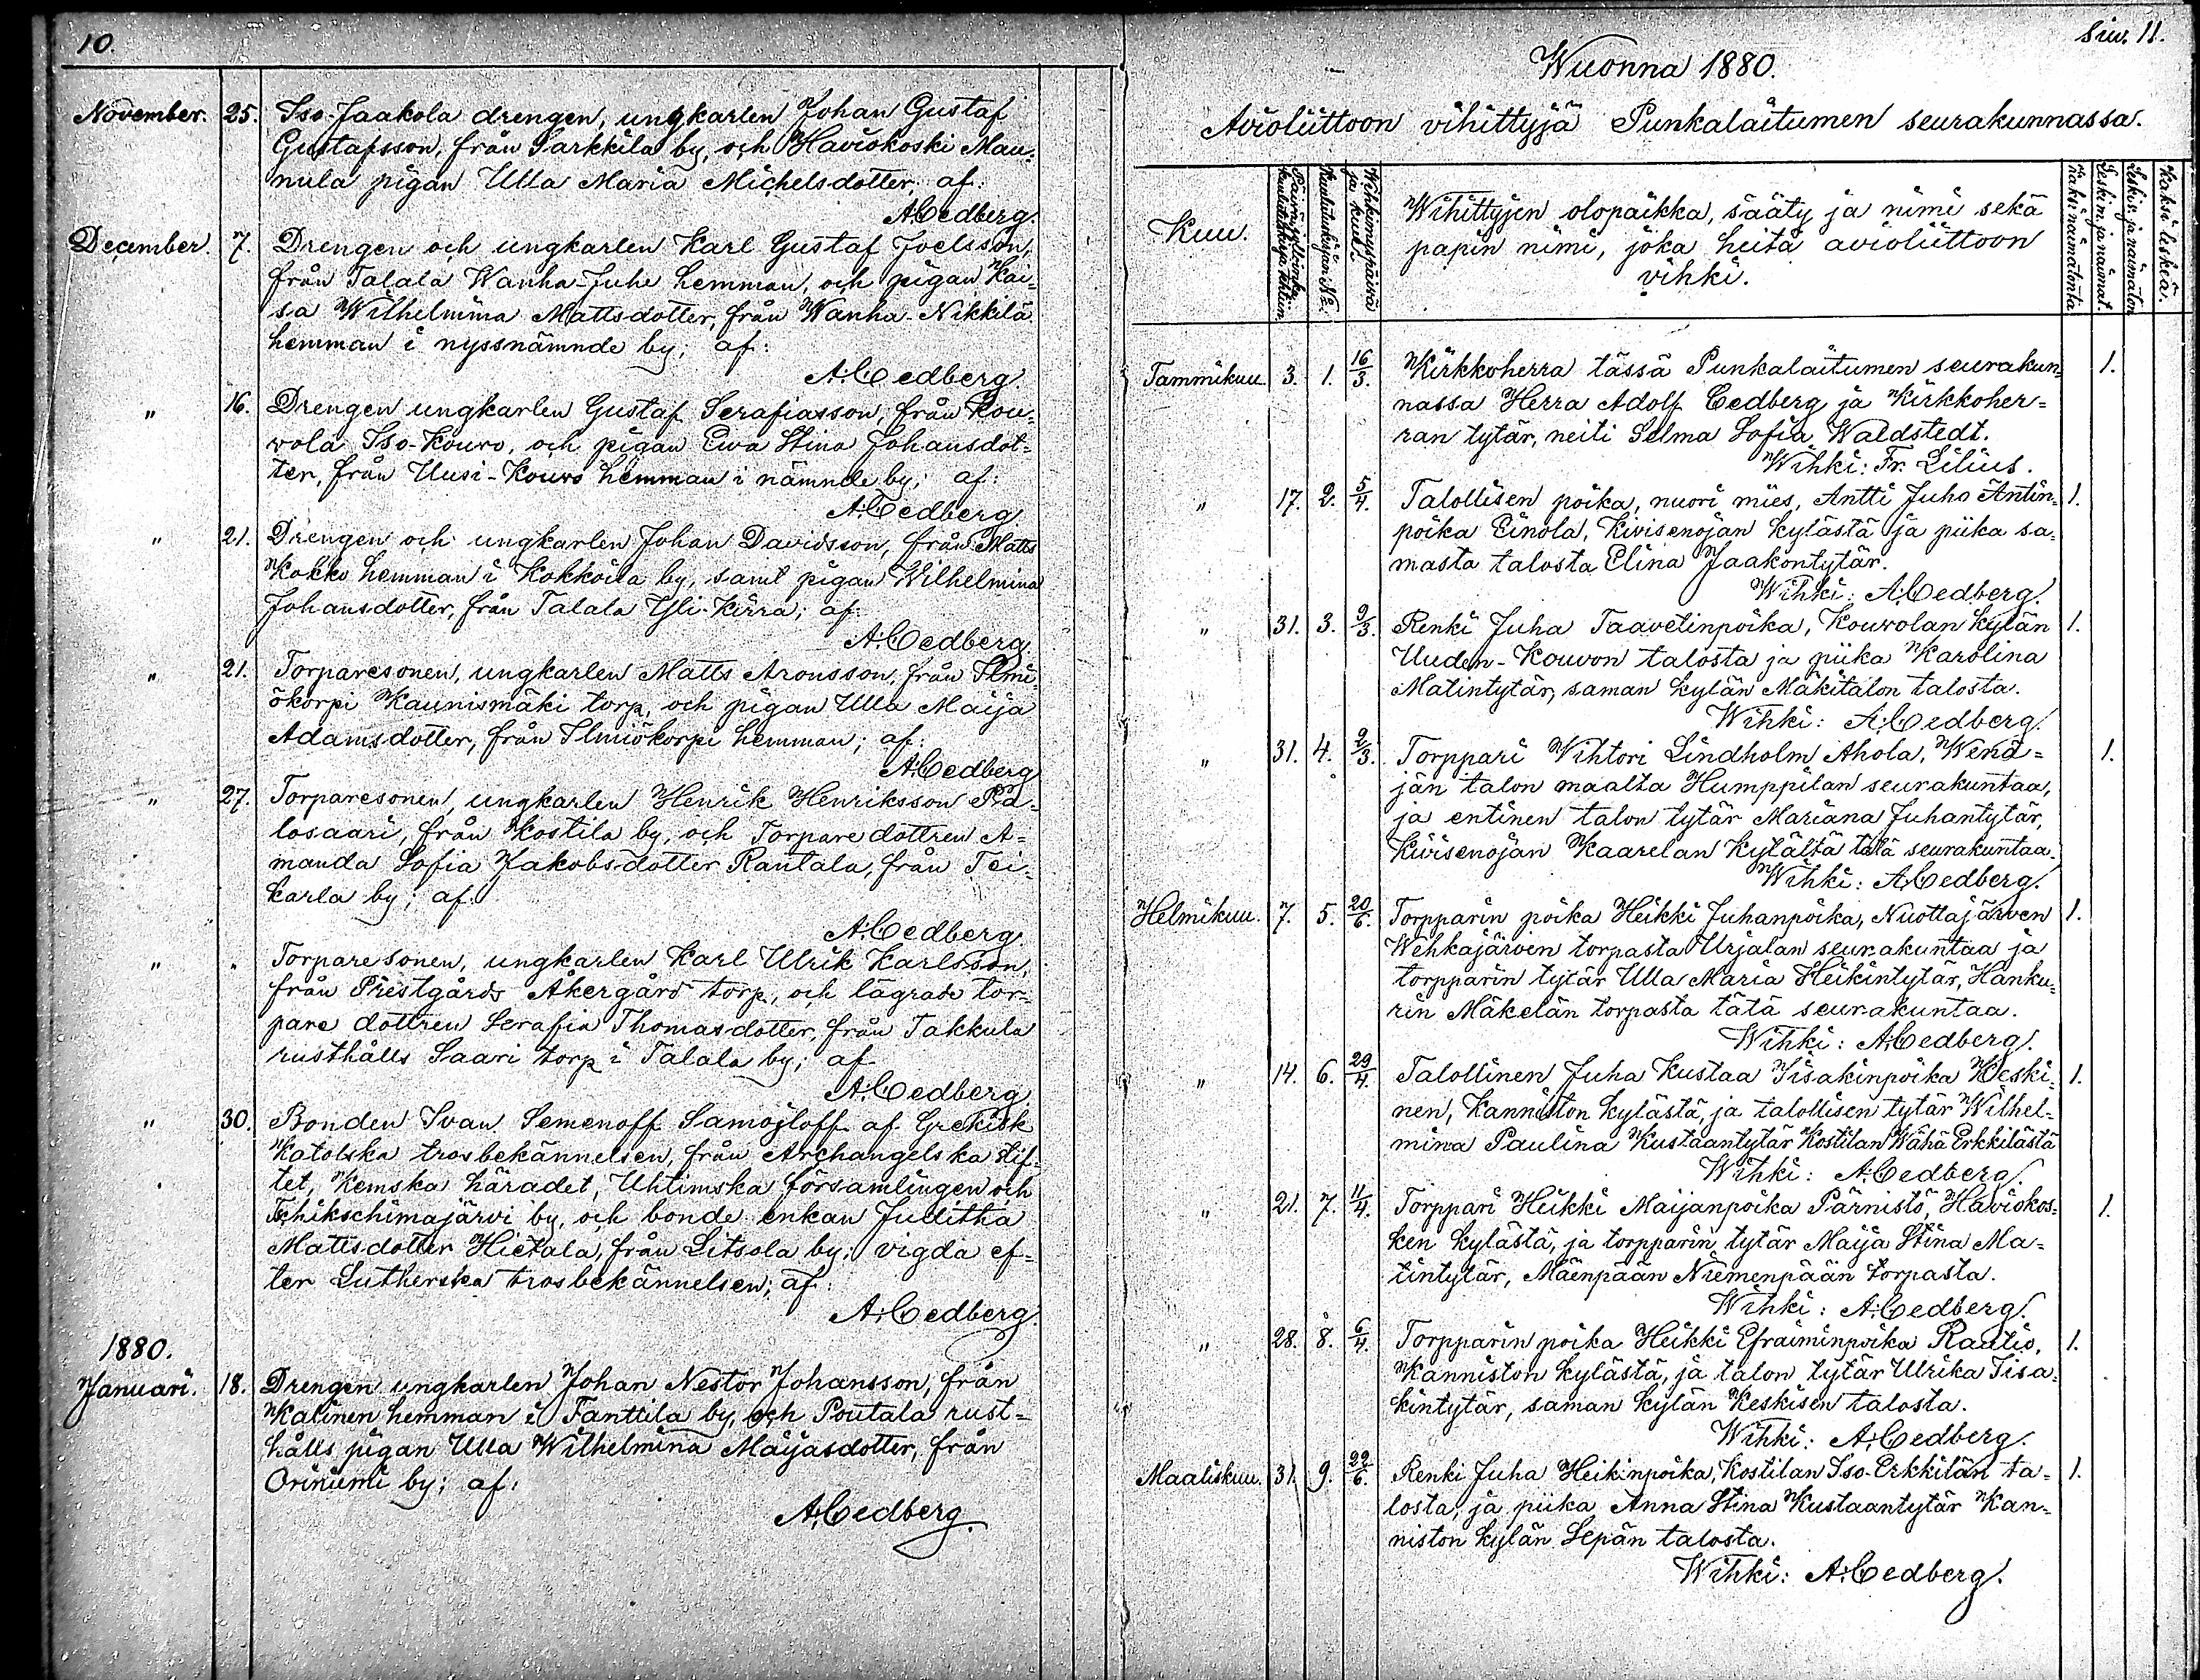 10.
November. 25. Iso-Jaakola drengen, ungkarlen Johan Gustaf
Gustafsson, från Sarkkila by, och Haviokoski Mau-
nula pigan Ulla Maria Michelsdotter; af:
A. Cedberg.
December. 7. Drengen och ungkarlen Karl Gustaf Joelsson,
från Talala Wanha-Juhe hemman, och pigan Kai-
sa Wilhelmina Mattsdotter, från Wanha-Nikkilä
hemman i nyssnämnde by; af:
A. Cedberg
" 16. Drengen ungkarlen Gustaf Serafiasson, från Kou-
vola Iso-Kouvo, och pigan Ewa Stina Johansdot-
ter, från Uusi-Kouvo hemman i nämnde by; af:
A. Cedberg
" 21. Drengen och ungkarlen Johan Davidsson, från Matts
Kokko hemman i Kokkoila by, samt pigan Wilhelmina
Johansdotter, från Talala Yli-Kirra; af:
A. Cedberg.
" 21. Torparesonen, ungkarlen Matts Aronsson, från Ilmi-
ökorpi Kaunismäki torp, och pigan Ulla Maija
Adamsdotter, från Ilmiökorpi hemman; af:
A. Cedberg
" 27. Torparesonen, ungkarlen Henrik Henriksson Pa-
losaari, från Kostila by, och Torparedottren A-
manda Sofia Jakobsdotter Rantala, från Tei-
karla by; af.
A. Cedberg.
" " Torparesonen, ungkarlen Karl Ulrik Karlsson,
från Prestgårds Åkergård torp, och lägrade tor-
pare dottren Serafia Thomasdotter, från Takkula
rusthålls Saari torp i Talala by; af
A. Cedberg
" 30. Bonden Ivan Semenoff Samojloff af Grekisk
Katolska trosbekännelsen, från Archangelska stif-
tet, Kemska häradet, Uhtimska församlingen och
Tschikschimajärvi by, och bonde enkan Juditha
Mattsdotter Hietala, från Litsola by; vigda ef-
ter Lutherska trosbekännelsen; af:
A. Cedberg.
1880.
Januari. 18. Drengen ungkarlen Johan Nestor Johansson, från
Kalinen hemman i Fanttila by, och Poutala rust-
hålls pigan Ulla Wilhelmina Maijasdotter, från
Oriniemi by; af:
A. Cedberg.
Siw. 11.
Wuonna 1880.
Avioliittoon vihittyjä Punkalaitumen seurakunnassa.
Kuu.
Kuulutuskirjan No.
Wihkimyspäivä
ja kuu.
Wihittyjen olopaikka, sääty ja nimi sekä
papin nimi, joka heitä avioliittoon
vihki.
Kaksi naimatonta
Leskim. ja naimat.
Leskiv. ja naimaton
Kaksi leskeä.
Tammikuu. 3. 1. 16/3. Kirkkoherra tässä Punkalaitumen seurakun- 1.
nassa Herra Adolf Cedberg ja Kirkkoher-
ran tytär, neiti Selma Sofia Waldstedt.
Wihki: Fr. Lilius.
" 17. 2. 5/4. Talollisen poika, nuori mies, Antti Juho Antin- 1.
poika Einola, Kivisenojan kylästä ja piika sa-
masta talosta Elina Jaakontytär.
Wihki: A. Cedberg.
" 31. 3. 9/3. Renki Juha Taavetinpoika, Kouvolan kylän 1.
Uuden-Kouvon talosta ja piika Karolina
Matintytär, saman kylän Mäkitalon talosta.
Wihki: A. Cedberg.
" 31. 4. 2/3. Torppari Wihtori Lindholm Ahola, Wenä- 1.
jän talon maalta Humppilan seurakuntaa,
ja entinen talon tytär Mariana Juhantytär,
Kivisenojan Kaarelan kylältä tätä seurakuntaa.
Wihki: A. Cedberg.
Helmikuu. 7. 5. 20/6. Torpparin poika Heikki Juhanpoika, Nuottajärven 1.
Wehkajärven torpasta Urjalan seurakuntaa ja
torpparin tytär Ulla Maria Heikintytär, Hanku-
rin Mäkelän torpasta tätä seurakuntaa.
Wihki: A. Cedberg.
" 14. 6. 29/4. Talollinen Juha Kustaa Iisakinpoika Keski- 1.
nen, Kanniston kylästä, ja talollisen tytär Wilhel-
mina Paulina Kustaantytär Kostilan Wähä Erkkilästä
Wihki: A. Cedberg.
" 21. 7. 11/4. Torppari Heikki Maijanpoika Pärnistö, Haviokos- 1.
ken kylästä, ja torpparin tytär Maija Stina Ma-
tintytär, Mäenpään Niemenpään torpasta.
Wihki: A. Cedberg.
" 28. 8. 6/4. Torpparin poika Heikki Efraiminpoika Raatio, 1.
Kanniston kylästä, ja talon tytär Ulrika Iisa-
kintytär, saman kylän Keskisen talosta.
Wihki: A. Cedberg.
Maaliskuu. 31. 9. 22/6. Renki Juha Heikinpoika, Kostilan Iso-Erkkilän ta- 1.
losta, ja piika Anna Stina Kustaantytär Kan-
niston kylän Sepän talosta.
Wihki: A. Cedberg.